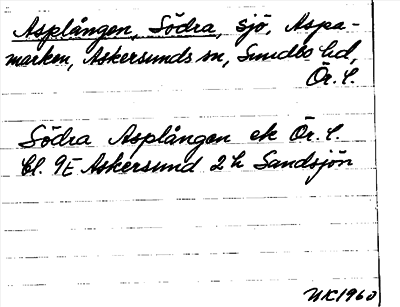 Asplången, Södra, sjö, Aspa-
marken, Askersunds sn, Sundbo hd,
Ör. l.
Södra Asplången ek Ör. l.
bl. 9E Askersund 2 h Sandsjön
NK 1960